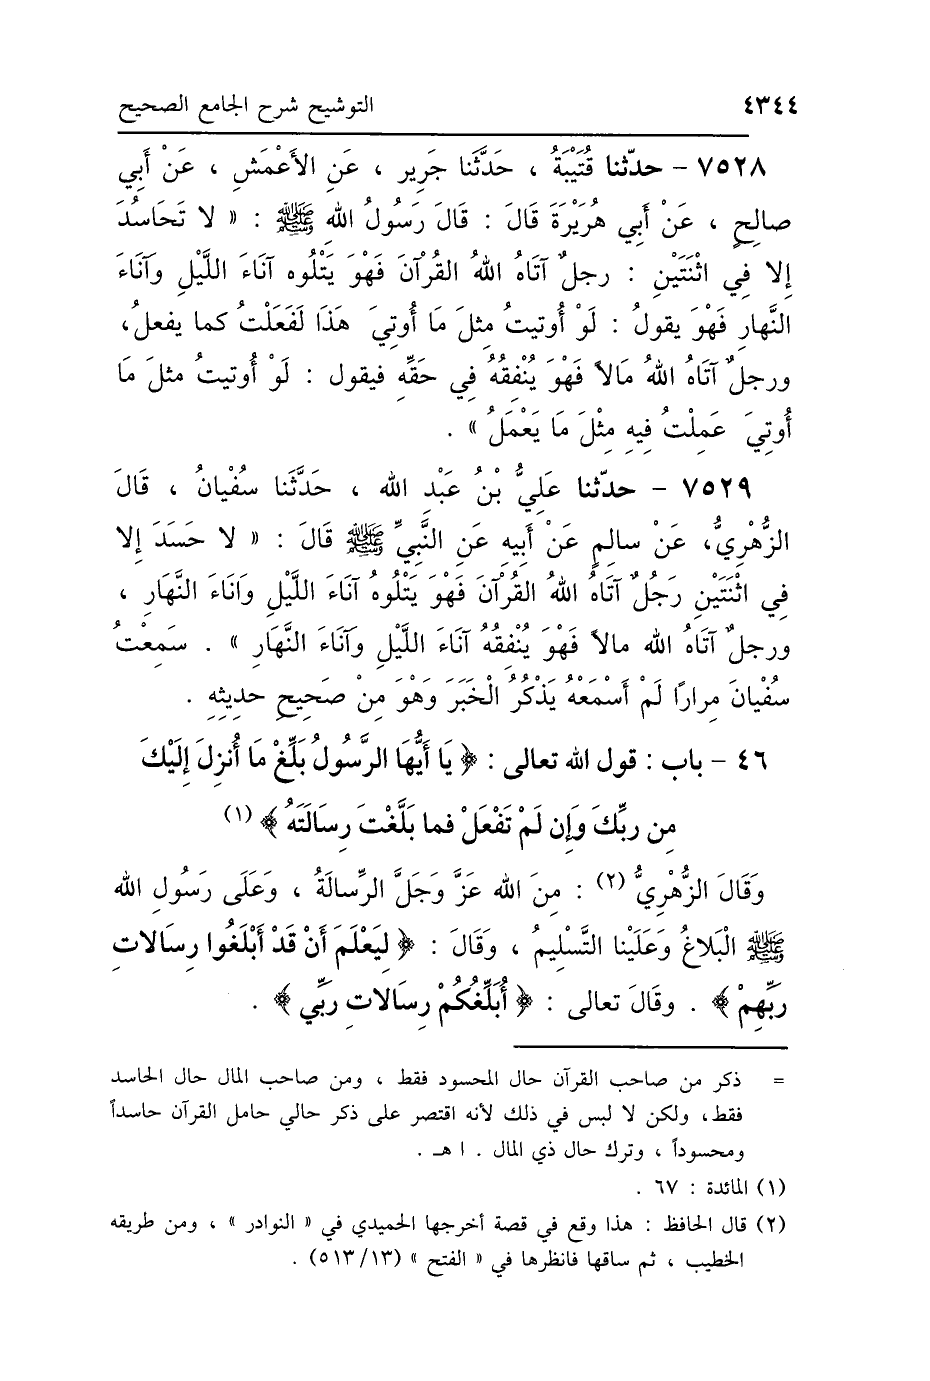 ٤٣٤٤ التوشيح شرح الجامع الصحيح
٧٥٢٨ - حدّثنا قُتَيْبَةُ ، حَدَّثَنا جَرِير ، عَنِ الأَعْمَشِ ، عَنْ أَبي
صالحٍ ، عَنْ أَبي هُرَيْرَةَ قَالَ : قَالَ رَسُولُ اللهِ ﷺ : « لا تَحَاسُدَ
إِلا فِي اثْنَتَيْنِ : رجلٌ آتَاهُ اللهُ القُرْآنَ فَهْوَ يَتْلُوه آنَاءَ اللَّيْلِ وَآنَاءَ
النَّهارِ فَهْوَ يقولُ : لَوْ أُوتيتُ مثلَ مَا أُوتيَ هَذَا لَفَعَلْتُ كما يفعلُ،
ورجلٌ آتَاهُ اللهُ مَالاً فَهْوَ يُنْفِقُهُ فِي حَقِّهِ فيقول : لَوْ أُوتيتُ مثلَ مَا
أُوتيَ عَمِلْتُ فِيهِ مِثْلَ مَا يَعْمَلُ » .
٧٥٢٩ - حدّثنا عَلِيُّ بْنُ عَبْدِ الله ، حَدَّثَنا سُفْيانُ ، قَالَ
الزُّهْرِيُّ، عَنْ سالمٍ عَنْ أَبِيهِ عَنِ النَّبيِّ ﷺ قَالَ : « لا حَسَدَ إِلا
فِي اثْنَتَيْنِ رَجُلٌ آتَاهُ اللهُ القُرْآنَ فَهْوَ يَتْلُوهُ آنَاءَ اللَّيْلِ وَانَاءَ النَّهَارِ ،
ورجلٌ آتَاهُ الله مالاً فَهْوَ يُنْفِقُهُ آنَاءَ اللَّيْلِ وَآنَاءَ النَّهَارِ » . سَمِعْتُ
سُفْيانَ مِراراً لَمْ أَسْمَعْهُ يَذْكُرُ الْخَبَرَ وَهْوَ مِنْ صَحِيحِ حديثِهِ .
٤٦ - باب : قول الله تعالى : ﴿ يَا أَيُّهَا الرَّسُولُ بَلِّغْ مَا أُنزِلَ إِلَيْكَ
مِن ربِّكَ وَإِن لَمْ تَفْعَلْ فما بَلَّغْتَ رِسالَتَهُ ﴾ (١)
وَقَالَ الزُّهْرِيُّ (٢) : مِنَ الله عَزَّ وَجَلَّ الرِّسالَةُ ، وَعَلَى رَسُولِ الله
ﷺ الْبَلاغُ وَعَلَيْنا التَّسْلِيمُ ، وَقَالَ : ﴿ لِيَعْلَمَ أَنْ قَدْ أَبْلَغُوا رِسالات
رَبِّهِمْ ﴾ . وقَالَ تعالى : ﴿ أُبَلِّغُكُمْ رِسَالاتِ رَبِّي ﴾ .
= ذكر من صاحب القرآن حال المحسود فقط ، ومن صاحب المال حال الحاسد
فقط، ولكن لا لبس في ذلك لأنه اقتصر على ذكر حالي حامل القرآن حاسداً
ومحسوداً ، وترك حال ذي المال . ا هـ .
(١) المائدة : ٦٧ .
(٢) قال الحافظ : هذا وقع في قصة أخرجها الحميدي في « النوادر » ، ومن طريقه
الخطيب ، ثم ساقها فانظرها في « الفتح » (٥١٣/١٣) .